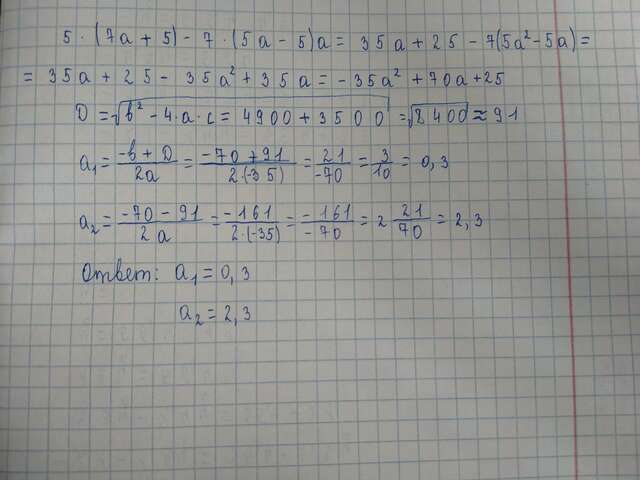 5 · (7a + 5) - 7 · (5a - 5)a = 35a + 25 - 7(5a² - 5a) =
= 35a + 25 - 35a² + 35a = - 35a² + 70a + 25
D = √b² - 4·a·c = 4900 + 3500 = √8400 ≈ 91
a₁ = (-b + D)/2a = (-70 + 91)/2·(-35) = 21/-70 = 3/10 = 0,3
a₂ = (-70 - 91)/2a = -161/2·(-35) = -161/-70 = 2 21/70 = 2,3
Ответ: a₁ = 0,3
a₂ = 2,3